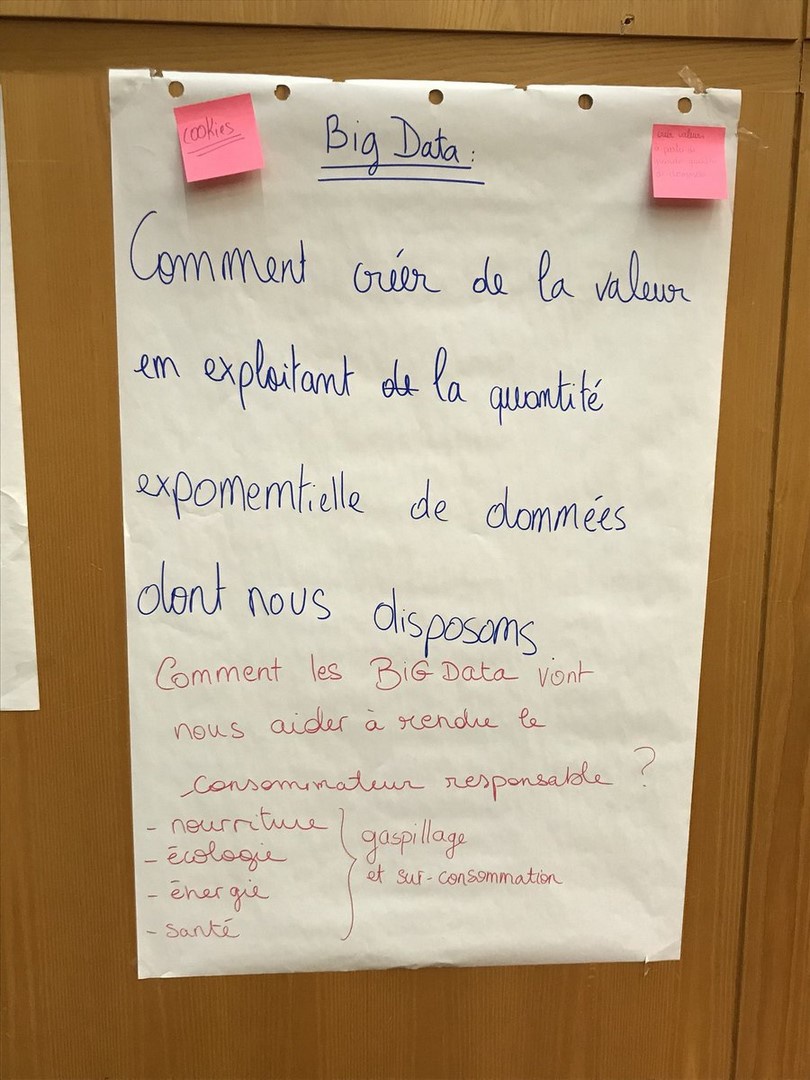 cookies
Big Data :
Comment créer de la valeur
en exploitant de la quantité
exponentielle de données
dont nous disposons
Comment les BiG Data vont
nous aider à rendre le
consommateur responsable ?
- nourriture
- écologie
- énergie
- santé
gaspillage
et sur-consommation